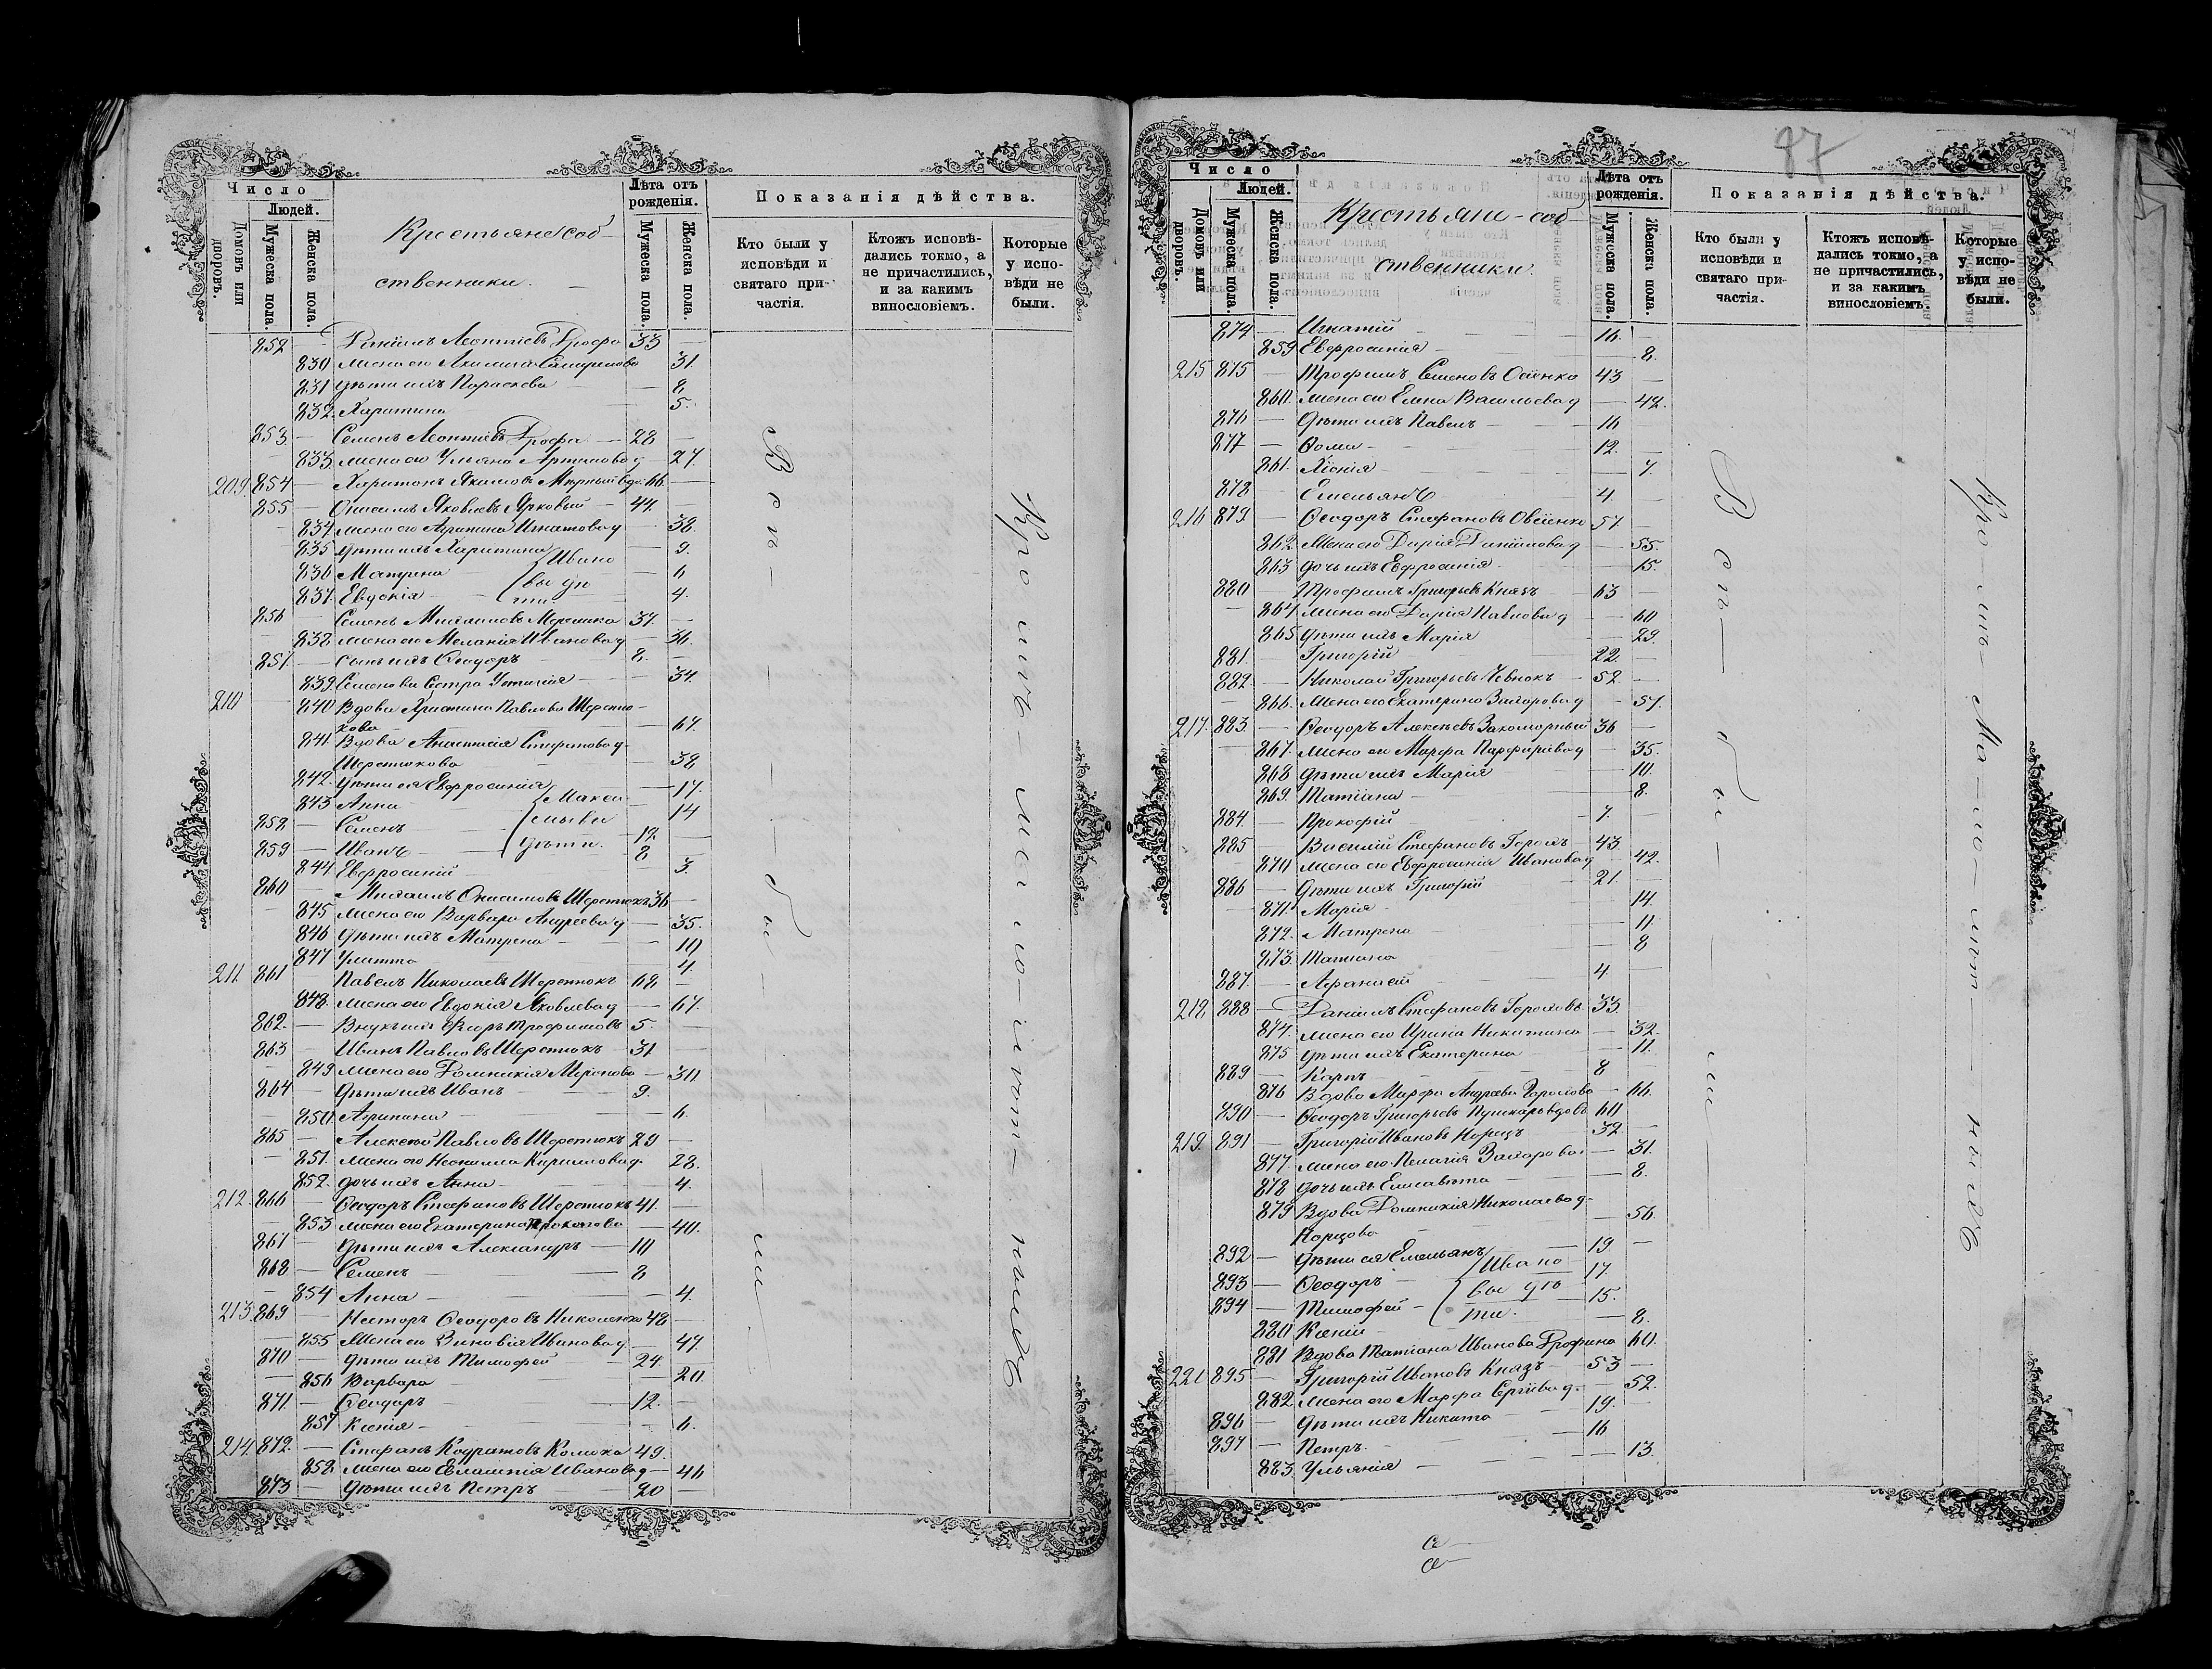 Число
Людей.
Домовъ или дворовъ.
Мужеска пола.
Женска пола.
Крестьяне соб-
ственники.
Лѣта отъ рожденія.
Мужеска пола.
Женска пола.
Показанія дѣйства.
Кто были у исповѣди и святаго причастія.
Ктожъ исповѣдались токмо, а не причастились, и за какимъ винословіемъ.
Которые у исповѣди не были.
852 — Даніилъ Леонтіевъ Дрофа 33 —
830 Жена его Акилина 31.
831 Дѣти ихъ Параскева — 8.
832. Харитина 5.
853 — Семенъ Леонтіевъ Дрофа — 28 —
833. Жена его Ульяна Артемова д 27.
209. 854 — Харитонъ вдо. 66. —
855 — Онисимъ Яковлевъ Ярковый — 44.
834 Жена его Агрипина Игнатова д — 38.
835 Дѣти ихъ Харитина — 9.
836 Матрена — 6
837. Евдокія — 4.
Ивано
вы дѣ
ти
856 — Семенъ 37. —
838. Жена его Меланія Иванова д — 36.
857. — Сынъ ихъ Ѳеодоръ 8. —
839. Семенова Сестра 34.
210 840 Вдова Христина Павлова Шеретю-
кова 67.
841. Вдова Анастасія Стефанова д
Шеретюкова — 38
842. Дѣти ея Евфросинія — 17.
843 Анна 14
858 — Семенъ — 12. —
859 — Иванъ — 8 —
Макси
мовы
Дѣти.
844. Евфросиній 3.
860 — Михаилъ Онисимовъ Шеретюкъ 36 —
845 Жена его Варвара Андреева д — 35.
846 Дѣти ихъ Матрена — 10
847 Улитта 4.
211. 861 Павелъ Николаевъ Шеретюкъ 68 —
848. Жена его Евдокія Яковлева д — 67.
862. — Внукъ ихъ Трофимовъ 5. —
863 — Иванъ Павловъ Шеретюкъ — 31 —
849 Жена его Домникія Миронова — 30.
864 — Дѣти ихъ Иванъ 9.
850. Агрипина — 6.
865 — Алексѣй Павловъ Шеретюкъ 29 —
851. Жена его Неонилла Кирилова д. 28.
852. Дочь ихъ Анна — 4.
212. 866 Ѳеодоръ Стефановъ Шеретюкъ 41. —
853 Жена его Екатерина — 40.
867 — Дѣти ихъ Александръ — 10
868 — Семенъ — 8
854 Анна — 4.
213. 869 — Несторъ Ѳеодоровъ Николенко 48 —
855 Жена его Зиновія Иванова д — 47.
870 — Дѣти ихъ Тимофей — 24.
856 Варвара — 20
871 — Ѳеодоръ — 12. —
857 Ксенія — 6.
214. 872. — Стефанъ Кодратовъ 49.
858. Жена его Евлампія Иванова д — 46
873 — Дѣти ихъ Петръ 20 —
Всѣ — бы — ли —
Кро мѣ — ма ло лѣт — нихъ
87
Число
Людей.
Домовъ или дворовъ.
Мужеска пола.
Женска пола.
Крестьяне-соб-
ственники.
Лѣта отъ рожденія.
Мужеска пола.
Женска пола.
Показанія дѣйства.
Кто были у исповѣди и святаго причастія.
Ктожъ исповѣдались токмо, а не причастились, и за какимъ винословіемъ.
Которые у исповѣди не были.
874 — Игнатій — 16. —
859 Евфросинія — 8.
215 875 — Трофимъ Семеновъ 43 —
860. Жена его Елена Васильева д — 42.
876 — Дѣти ихъ Павелъ — 16
877 — Ѳома — 12. —
861. — 7.
878 — Емельянъ 4. —
216 879. — Ѳеодоръ Стефановъ Овсіенко 57. —
862. Жена его Дарія Даніилова д — 55.
863 дочь ихъ Евфросинія — 15.
880 — Трофимъ Григорьевъ Князъ — 63 —
864. Жена его Дарія Павлова д — 60
865 Дѣти ихъ Марія — 29.
881. — Григорій 22. —
882. — Николай Григорьевъ 52 —
866. Жена его Екатерина Захарова д — 57.
217. 883. — Ѳеодоръ Алексѣевъ 36 —
867. Жена его Марфа Парфирьева д — 35.
868 дѣти ихъ Марія — 10.
869. Татіана — 8.
884. — Прокофій — 7. —
885 — Василій Стефановъ 43
870 Жена его Евфросинія Иванова д — 42.
886 — Дѣти ихъ Григорій — 21. —
871. Марія — 14.
872. Матрена 11.
873. Татіана — 8
887. — Афанасій — 4. —
218 888 — Даніилъ Стефановъ 33.
874. Жена его Ирина Никитина — 32.
875 Дѣти ихъ Екатерина — 11.
889 — Карпъ — 8
876 Вдова Марфа Андреева — 66.
890 — Ѳеодоръ Григорьевъ Пушкарь вдовъ 60
219. 891 — Григорій Ивановъ 32 —
877. Жена его Пелагія Захарова — 31.
878 дочь ихъ Елисавета — 8.
879 Вдова Домникія Николаева д — 56.
892 — Дѣти ея Емельянъ — 19 —
893 — Ѳеодоръ 17.
894 — Тимофей — 15.
Ивано
вы дѣ
ти.
880 Ксенія — 8.
881 Вдова Татіана Иванова 60.
220 895 — Григорій Ивановъ Князъ — 53 —
882. Жена его Марфа Сергіева д. 52.
896 — Дѣти ихъ Никита — 19. —
897 — Петръ. — 16
883. Ульянія — 13.
Всѣ — бы — ли
Кро мѣ — Ма ло лѣт — нихъ